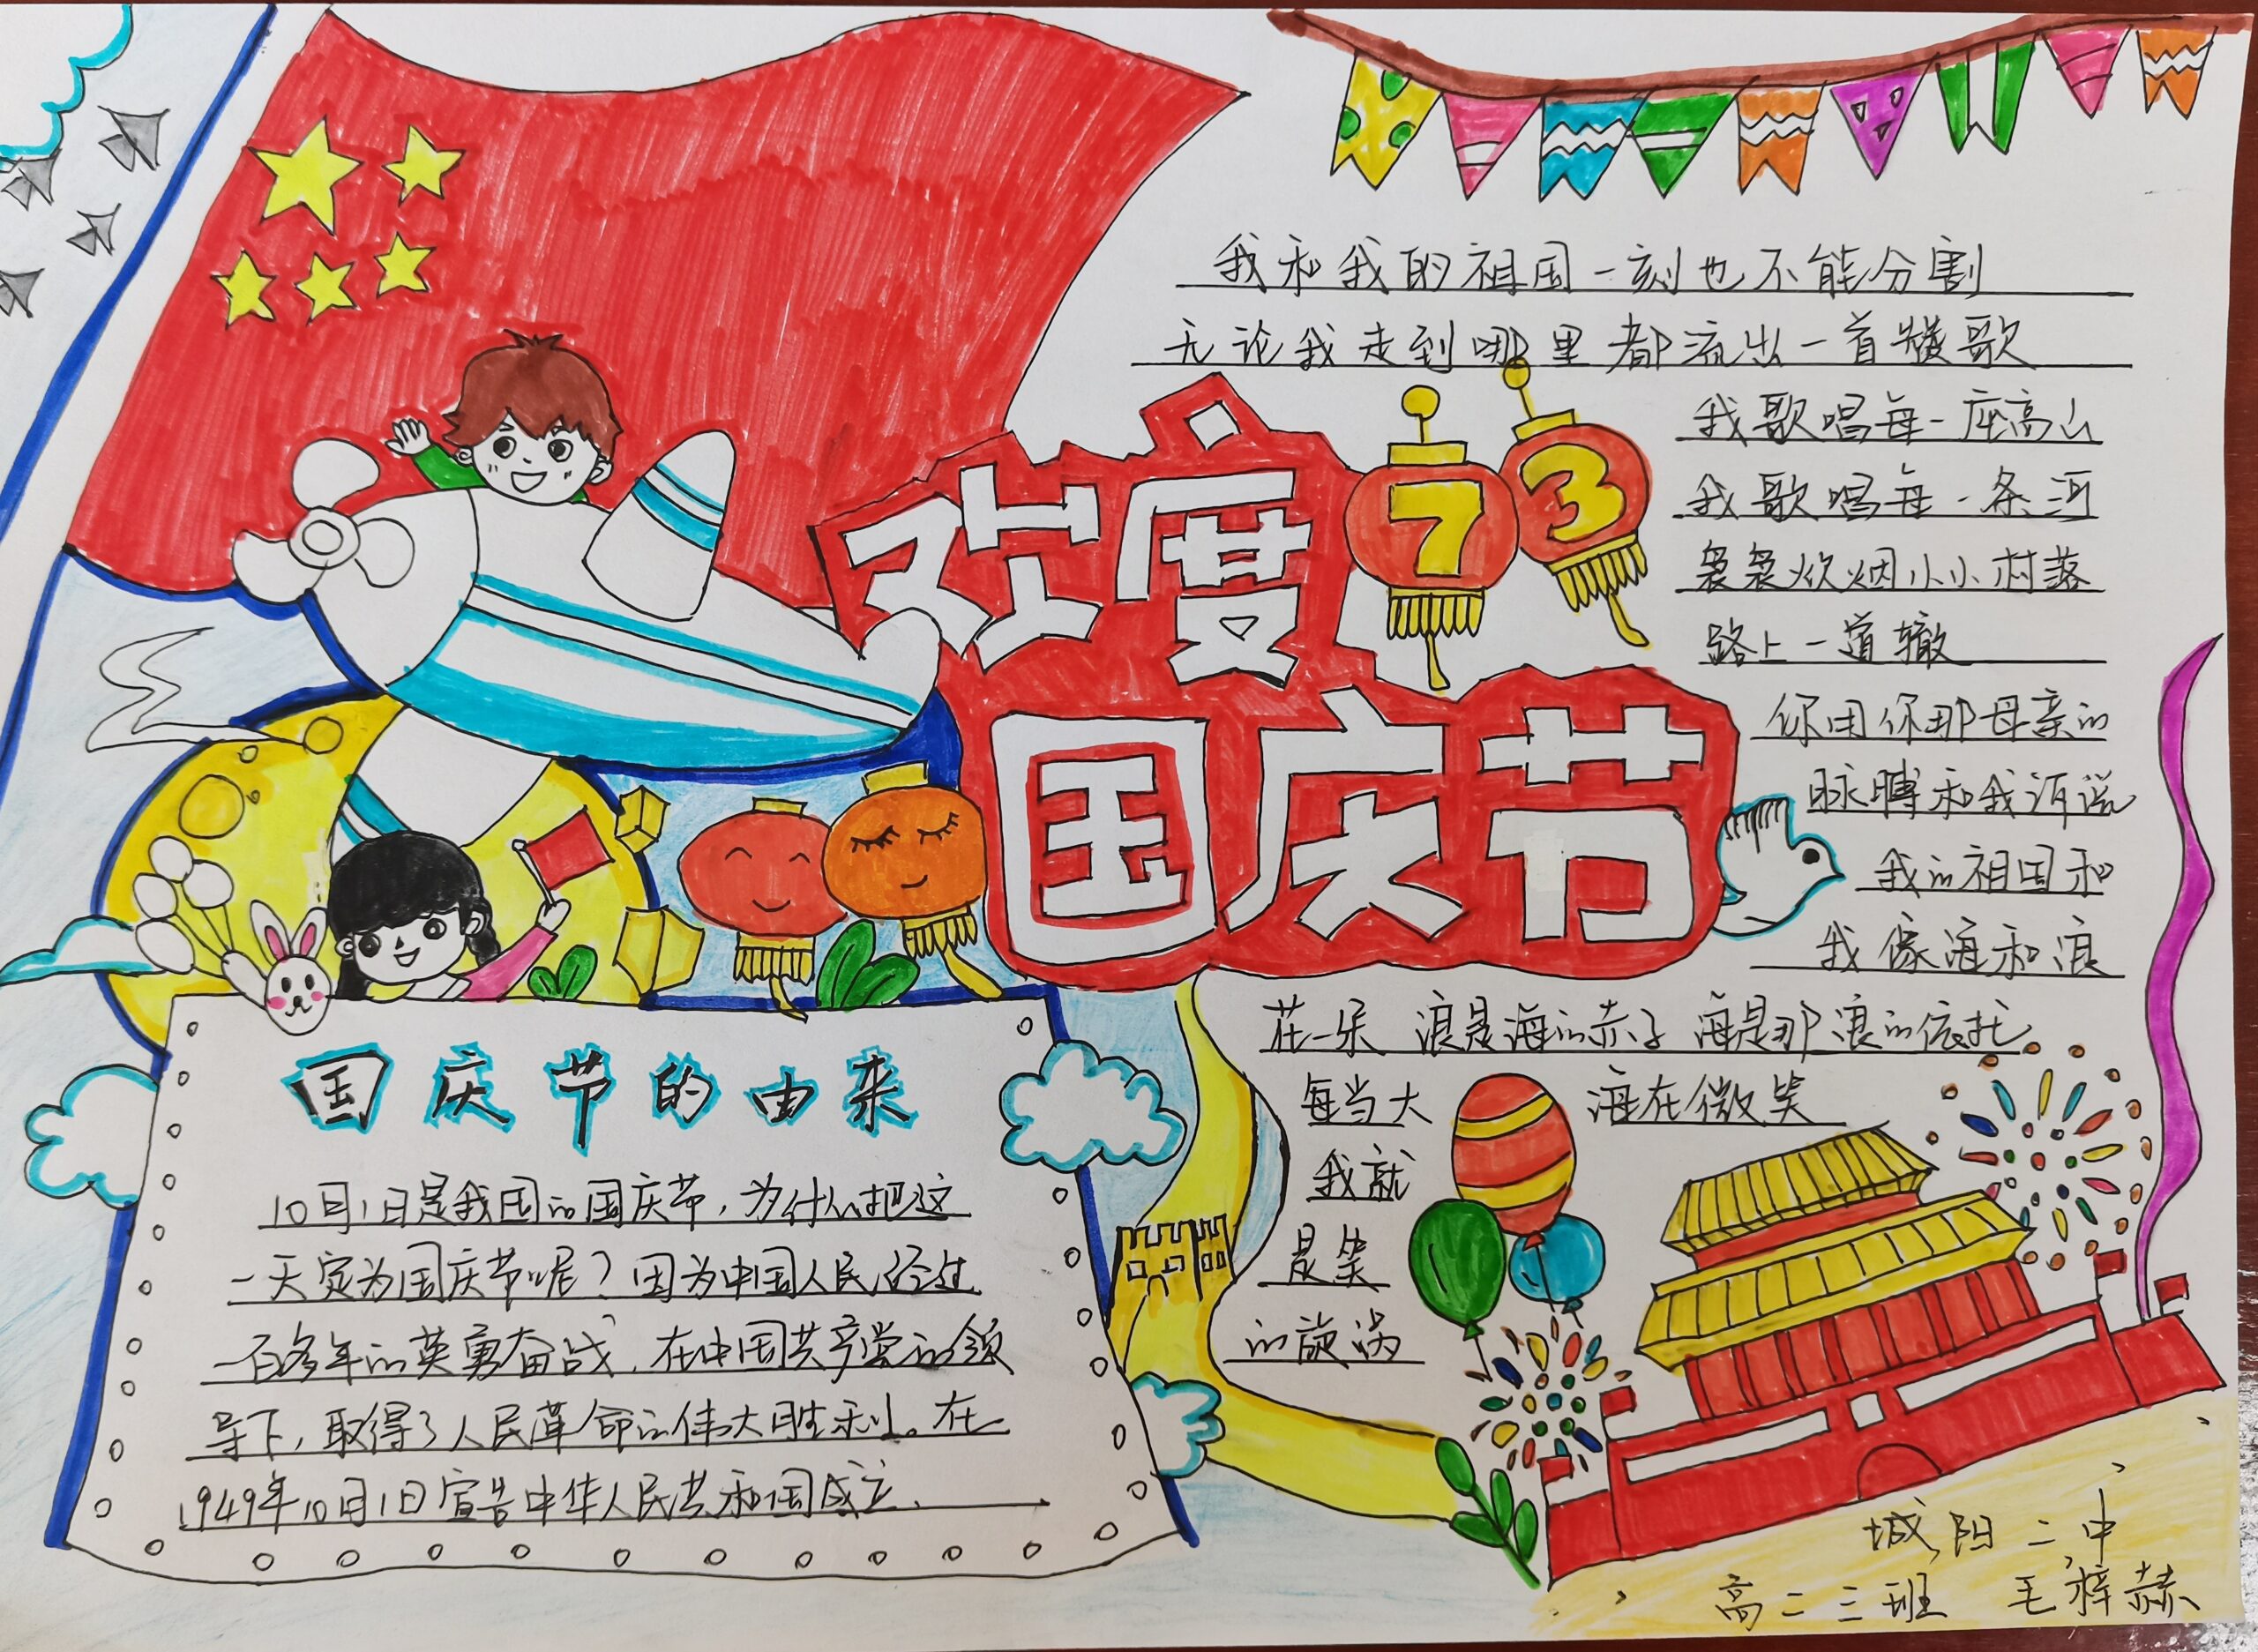 我和我的祖国一刻也不能分割
无论我走到哪里都流出一首赞歌
我歌唱每一座高山
我歌唱每一条河
袅袅炊烟小小村落
路上一道辙
欢度
73
国庆节
你用你那母亲的
脉膊和我诉说
我的祖国和
我像海和浪
花一朵 浪是海的赤子 海是那浪的依托
每当大 海在微笑
我就
是笑
的旋涡
国庆节的由来
10月1日是我国的国庆节,为什么把这
一天定为国庆节呢?因为中国人民经过
一百多年的英勇奋战,在中国共产党的领
导下,取得了人民革命的伟大胜利。在
1949年10月1日宣告中华人民共和国成立.
城阳二中
高二三班 毛梓赫